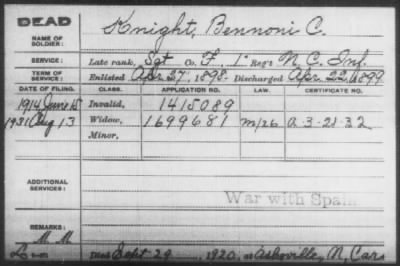 DEAD
NAME OF SOLDIER: Knight, Bennoni C.
SERVICE: Late rank, Sgt Co. F, 1" Reg't N.C. Inf.
TERM OF SERVICE: Enlisted Apr. 27, 1898. Discharged Apr. 22, 1899
DATE OF FILING. CLASS. APPLICATION NO. LAW. CERTIFICATE NO.
1914 June 15 Invalid, 1415089
1931 Aug 13 Widow, 1699681 M/26 A-3-21-32
Minor,
ADDITIONAL SERVICES:
War with Spain
REMARKS:
M.M
Died Sept 29, 1920, at Asheville, N, Car